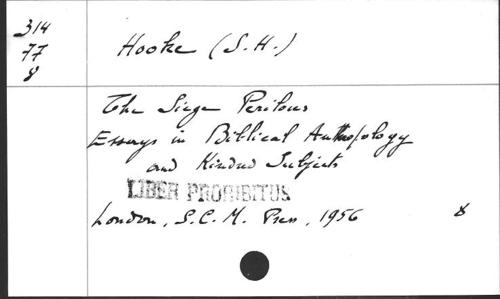 314
77
8
Hooke (S.H.)
The Siege Perilous
Essays in Biblical Anthropology
and Kindred Subjects
LIBER PROHIBITUS
London, S.C.M. Press, 1956
8